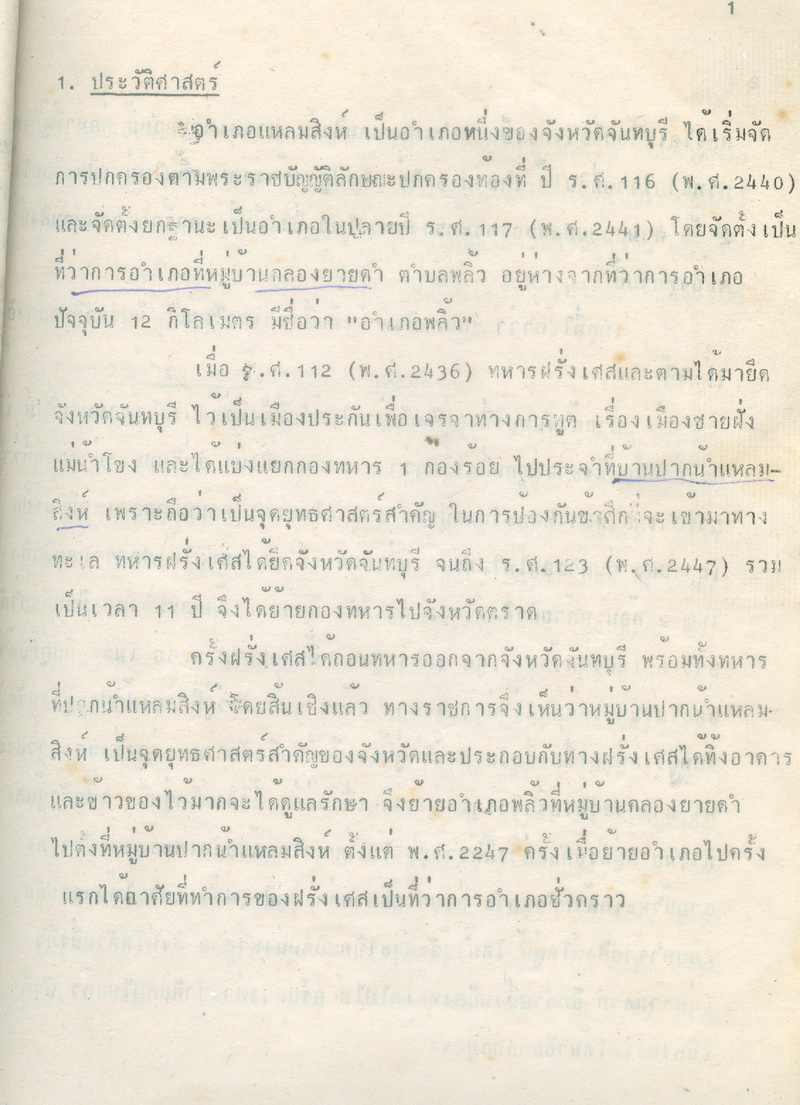 1
1. ประวัติศาสตร์
อำเภอแหลมสิงห์ เป็นอำเภอหนึ่งของจังหวัดจันทบุรี ได้เริ่มจัด
การปกครองตามพระราชบัญญัติลักษณะปกครองท้องที่ ปี ร.ศ.116 (พ.ศ.2440)
และจัดตั้งยกฐานะเป็นอำเภอในปลายปี ร.ศ.117 (พ.ศ.2441) โดยจัดตั้งเป็น
ที่ว่าการอำเภอที่หมู่บ้านคลองยายดำ ตำบลพลิ้ว อยู่ห่างจากที่ว่าการอำเภอ
ปัจจุบัน 12 กิโลเมตร มีชื่อว่า "อำเภอพลิ้ว"
เมื่อ ร.ศ.112 (พ.ศ.2436) ทหารฝรั่งเศสและตามได้มายึด
จังหวัดจันทบุรี ไว้เป็นเมืองประกันเพื่อเจรจาทางการทูต เรื่องเมืองชายฝั่ง
แม่น้ำโขง และได้แบ่งแยกกองทหาร 1 กองร้อย ไปประจำที่บ้านปากน้ำแหลม-
สิงห์ เพราะถือว่าเป็นจุดยุทธศาสตร์สำคัญ ในการป้องกันข้าศึกที่จะเข้ามาทาง
ทะเล ทหารฝรั่งเศสได้ยึดจังหวัดจันทบุรี จนถึง ร.ศ.123 (พ.ศ.2447) รวม
เป็นเวลา 11 ปี จึงได้ย้ายกองทหารไปจังหวัดตราด
ครั้งฝรั่งเศสได้ถอนทหารออกจากจังหวัดจันทบุรี พร้อมทั้งทหาร
ที่ปากน้ำแหลมสิงห์ โดยสิ้นเชิงแล้ว ทางราชการจึงเห็นว่าหมู่บ้านปากน้ำแหลม-
สิงห์ เป็นจุดยุทธศาสตร์สำคัญของจังหวัดและประกอบกับทางฝรั่งเศสได้ทิ้งอาคาร
และข้าวของไว้มากจะได้ดูแลรักษา จึงย้ายอำเภอพลิ้วที่หมู่บ้านคลองยายดำ
ไปตั้งที่หมู่บ้านปากน้ำแหลมสิงห์ ตั้งแต่ พ.ศ.2247 ครั้งเมื่อย้ายอำเภอไปครั้ง
แรกได้อาศัยที่ทำการของฝรั่งเศสเป็นที่ว่าการอำเภอชั่วคราว